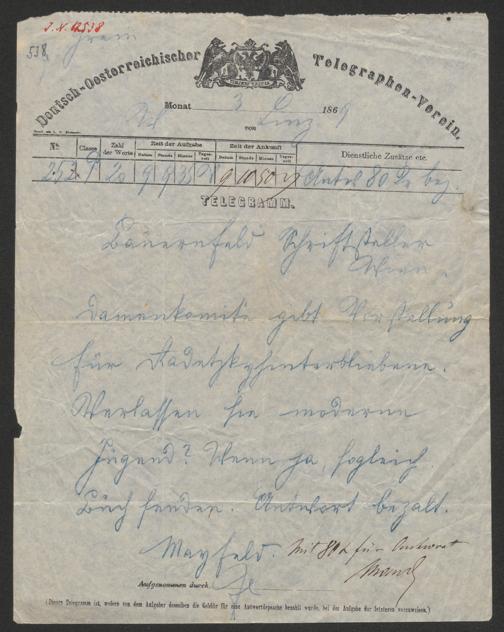 J. N. 12538
538
Deutsch-Oesterreichischer Telegraphen-Verein.
Monat 3 1869
von
Linz
No. Classe Zahl der Worte Zeit der Aufgabe Zeit der Ankunft Dienstliche Zusätze etc.
Datum Stunde Minuten Tageszeit Datum Stunde Minuten Tageszeit
252 20 9 9 35 9 10 50 Antw 80 bez.
TELEGRAMM.
Bauernfeld Schriftsteller
Wien.
Damenkomite gebt Vorstellung
für Radetzkyhinterbliebene.
Verlassen sie moderne
Jugend? Wenn ja, sogleich
Buch senden. Antwort bezalt.
Mayfeld. Mit 80 x für Antwort
Aufgenommen durch
(Dieses Telegramm ist, wofern von dem Aufgeber desselben die Gebühr für eine Antwortdepesche bezahlt wurde, bei der Aufgabe der letzteren vorzuweisen.)